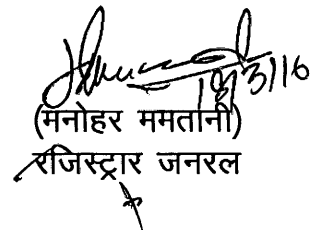 18/3/16
(मनोहर ममतानी)
रजिस्ट्रार जनरल